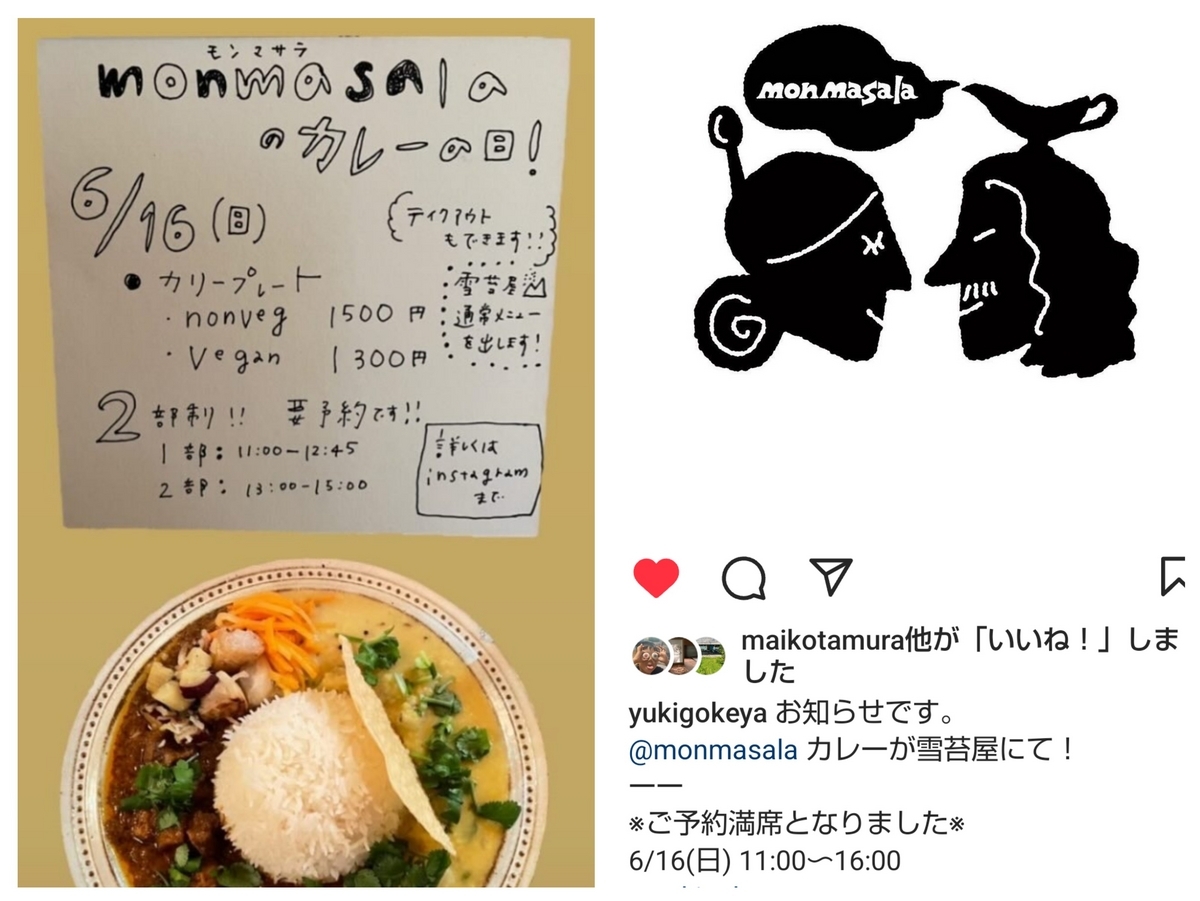 モンマサラ
monmasala
のカレーの日!
6/16(日)
テイクアウト
もできます!!
● カリープレート
・nonveg 1500円
・Vegan 1300円
雪苔屋
通常メニュー
を出します!
2部制!! 要予約です!!
1部:11:00-12:45
2部:13:00-15:00
詳しくは
instagram
まで
monmasala
maikotamura他が「いいね!」しま
した
yukigokeya お知らせです。
@monmasala カレーが雪苔屋にて!
ーー
※ご予約満席となりました※
6/16(日) 11:00〜16:00